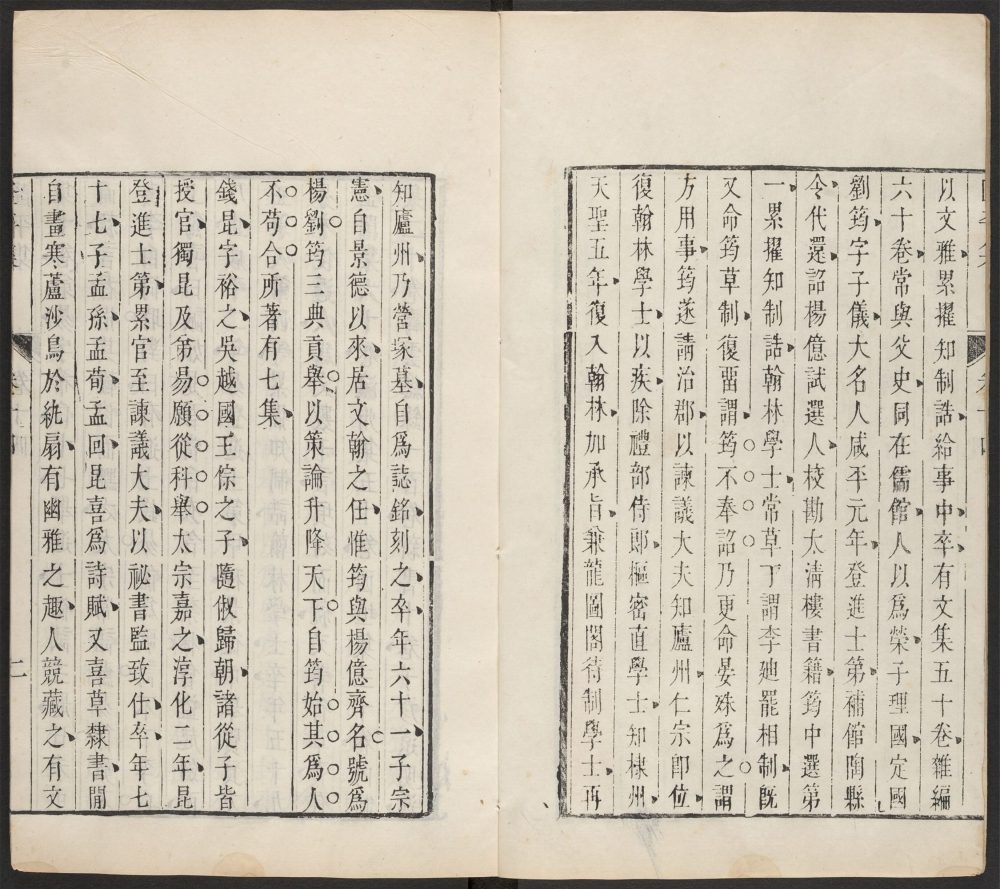 以文雅累擢知制誥給事中卒有文集五十卷雜編
六十卷常與父史同在儒館人以爲榮子理國定國
劉筠字子儀大名人咸平元年登進士第補館陶縣
令代還詔楊億試選人校勘太清樓書籍筠中選第
一累擢知制誥翰林學士常草丁謂李廸罷相制旣
又命筠草制復畱謂筠不奉詔乃更命晏殊爲之謂
方用事筠遂請治郡以諫議大夫知廬州仁宗卽位
復翰林學士以疾除禮部侍郎樞密直學士知棣州
天聖五年復入翰林加承旨兼龍圖閣待制學士再
知廬州乃營塚墓自爲誌銘刻之卒年六十一子宗
憲自景德以來居文翰之任惟筠與楊億齊名號爲
楊劉筠三典貢舉以策論升降天下自筠始其爲人
不苟合所著有七集
錢昆字裕之吳越國王倧之子隨俶歸朝諸從子皆
授官獨昆及弟易願從科舉太宗嘉之淳化二年昆
登進士第累官至諫議大夫以祕書監致仕卒年七
十七子孟孫孟荀孟回昆喜爲詩賦又喜草隸書閒
自畫寒蘆沙鳥於紈扇有幽雅之趣人競藏之有文
二